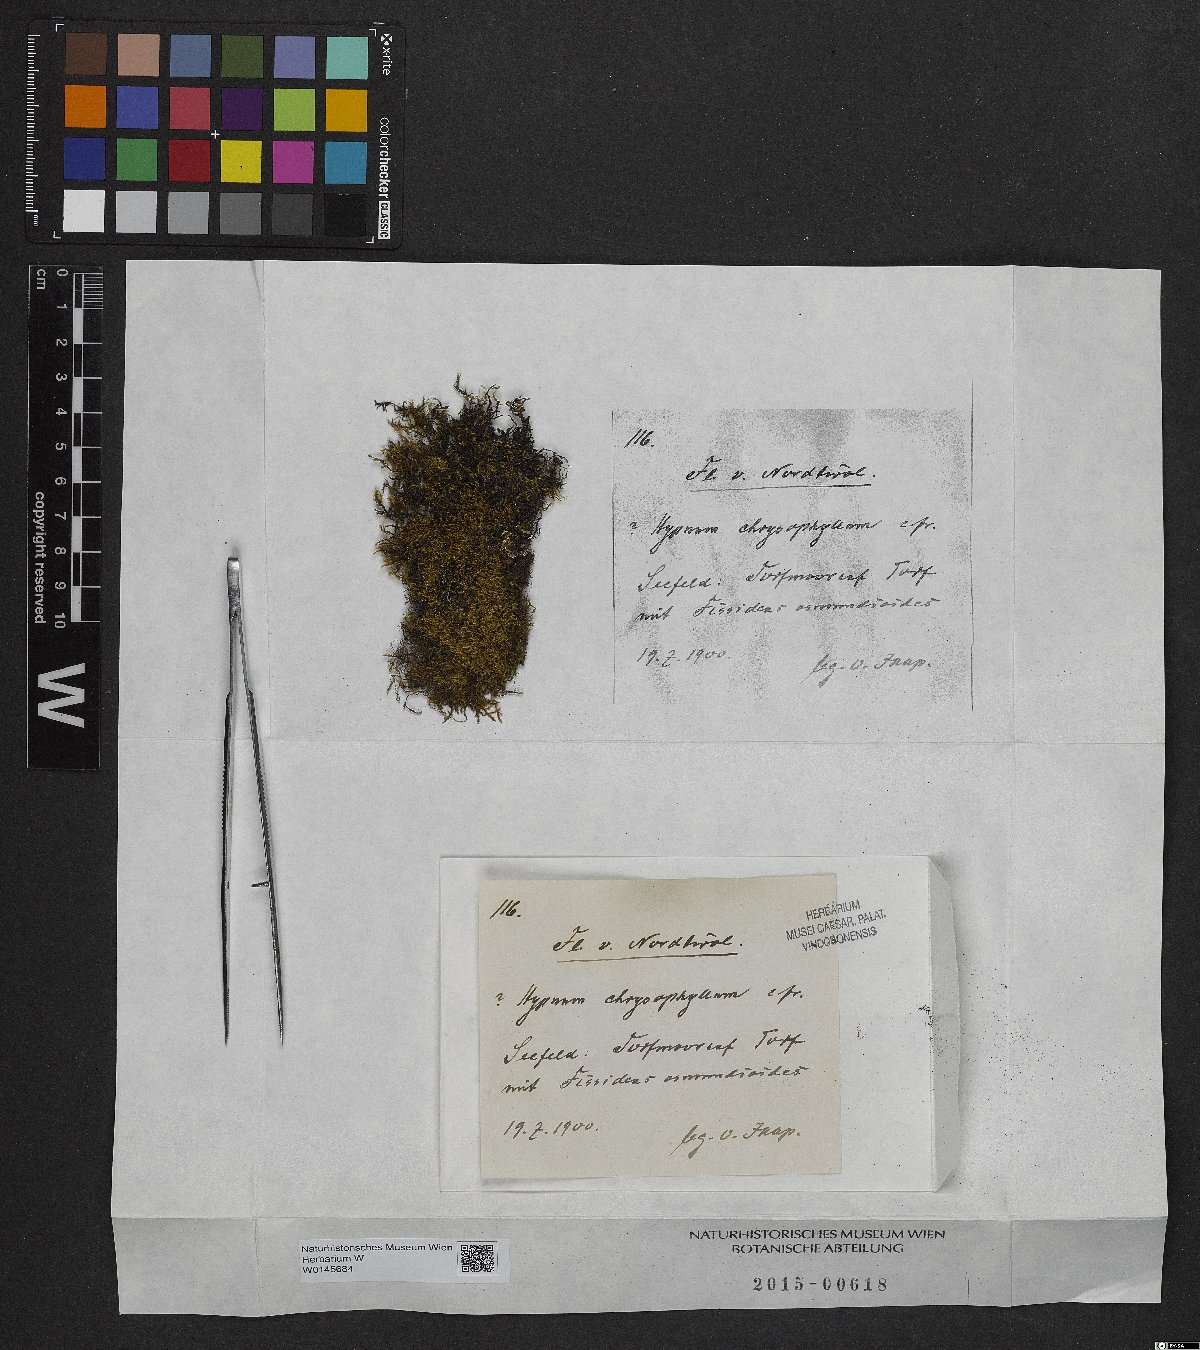 x-rite
colorchecker CLASSIC
mm
0 1 2 3 4 5 6 7 8 9 10
cm
copyright reserved
W
116.
Fl. v. Nordtirol.
? Hypnum chrysophyllum c. fr.
Seefeld: Torfmoor auf Torf
mit Fissidens osmundioides
19.7.1900.
leg. O. Jaap.
116.
Fl. v. Nordtirol.
? Hypnum chrysophyllum c. fr.
Seefeld: Torfmoor auf Torf
mit Fissidens osmundioides
19.7.1900.
leg. O. Jaap.
HERBARIUM
MUSEI CAESAR. PALAT.
VINDOBONENSIS
Naturhistorisches Museum Wien
Herbarium W
W0145684
NATURHISTORISCHES MUSEUM WIEN
BOTANISCHE ABTEILUNG
2015-00618
BY-SA